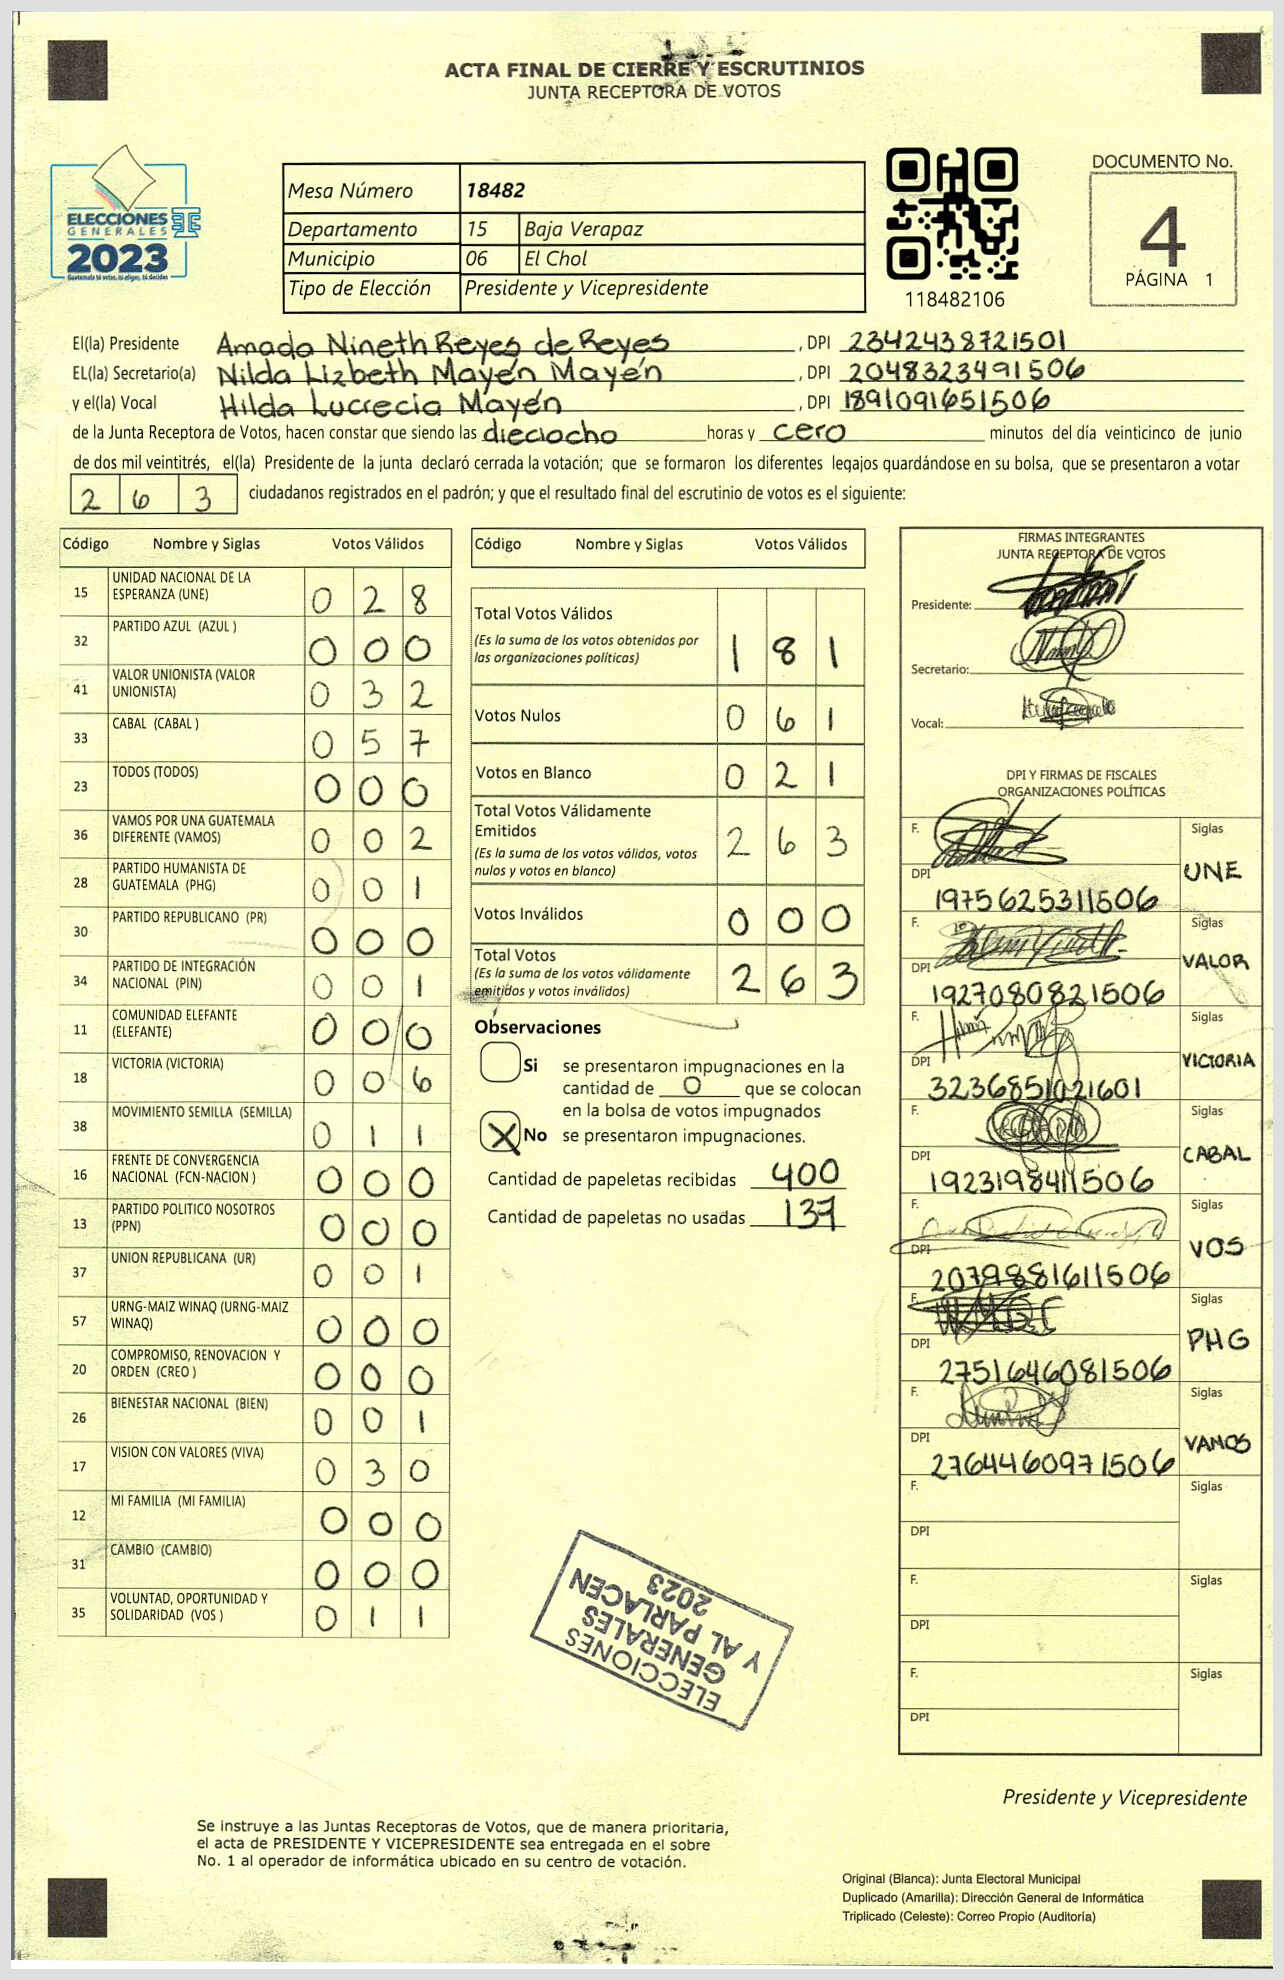 ACTA FINAL DE CIERRE Y ESCRUTINIOS
JUNTA RECEPTORA DE VOTOS
ELECCIONES
GENERALES
2023
Guatemala tú votas, tú eliges, tú decides
Mesa Número 18482
Departamento 15 Baja Verapaz
Municipio 06 El Chol
Tipo de Elección Presidente y Vicepresidente
118482106
DOCUMENTO No.
4
PÁGINA 1
El(la) Presidente Amada Nineth Reyes de Reyes , DPI 2342438721501
EL(la) Secretario(a) Nilda Lizbeth Mayén Mayén , DPI 2048323491506
y el(la) Vocal Hilda Lucrecia Mayén , DPI 1891091651506
de la Junta Receptora de Votos, hacen constar que siendo las dieciocho horas y cero minutos del día veinticinco de junio
de dos mil veintitrés, el(la) Presidente de la junta declaró cerrada la votación; que se formaron los diferentes legajos guardándose en su bolsa, que se presentaron a votar
263 ciudadanos registrados en el padrón; y que el resultado final del escrutinio de votos es el siguiente:
Código Nombre y Siglas Votos Válidos
15 UNIDAD NACIONAL DE LA ESPERANZA (UNE) 028
32 PARTIDO AZUL (AZUL ) 000
41 VALOR UNIONISTA (VALOR UNIONISTA) 032
33 CABAL (CABAL ) 057
23 TODOS (TODOS) 000
36 VAMOS POR UNA GUATEMALA DIFERENTE (VAMOS) 002
28 PARTIDO HUMANISTA DE GUATEMALA (PHG) 001
30 PARTIDO REPUBLICANO (PR) 000
34 PARTIDO DE INTEGRACIÓN NACIONAL (PIN) 001
11 COMUNIDAD ELEFANTE (ELEFANTE) 000
18 VICTORIA (VICTORIA) 006
38 MOVIMIENTO SEMILLA (SEMILLA) 011
16 FRENTE DE CONVERGENCIA NACIONAL (FCN-NACION ) 000
13 PARTIDO POLITICO NOSOTROS (PPN) 000
37 UNION REPUBLICANA (UR) 001
57 URNG-MAIZ WINAQ (URNG-MAIZ WINAQ) 000
20 COMPROMISO, RENOVACION Y ORDEN (CREO ) 000
26 BIENESTAR NACIONAL (BIEN) 001
17 VISION CON VALORES (VIVA) 030
12 MI FAMILIA (MI FAMILIA) 000
31 CAMBIO (CAMBIO) 000
35 VOLUNTAD, OPORTUNIDAD Y SOLIDARIDAD (VOS ) 011
Código Nombre y Siglas Votos Válidos
Total Votos Válidos 181
(Es la suma de los votos obtenidos por
las organizaciones políticas)
Votos Nulos 061
Votos en Blanco 021
Total Votos Válidamente
Emitidos 263
(Es la suma de los votos válidos, votos
nulos y votos en blanco)
Votos Inválidos 000
Total Votos 263
(Es la suma de los votos válidamente
emitidos y votos inválidos)
Observaciones
Si se presentaron impugnaciones en la
cantidad de 0 que se colocan
en la bolsa de votos impugnados
X No se presentaron impugnaciones.
Cantidad de papeletas recibidas 400
Cantidad de papeletas no usadas 137
ELECCIONES
GENERALES
Y AL PARLACEN
2023
FIRMAS INTEGRANTES
JUNTA RECEPTORA DE VOTOS
Presidente:
Secretario:
Vocal:
DPI Y FIRMAS DE FISCALES
ORGANIZACIONES POLÍTICAS
F. Siglas
DPI 1975625311506 UNE
F. Siglas
DPI 1927080821506 VALOR
F. Siglas
DPI 3236851021601 VICTORIA
F. Siglas
DPI 1923198411506 CABAL
F. Siglas
DPI 2079881611506 VOS
F. Siglas
DPI 2751646081506 PHG
F. Siglas
DPI 2764460971506 VAMOS
F. Siglas
DPI
F. Siglas
DPI
F. Siglas
DPI
Presidente y Vicepresidente
Se instruye a las Juntas Receptoras de Votos, que de manera prioritaria,
el acta de PRESIDENTE Y VICEPRESIDENTE sea entregada en el sobre
No. 1 al operador de informática ubicado en su centro de votación.
Original (Blanca): Junta Electoral Municipal
Duplicado (Amarilla): Dirección General de Informática
Triplicado (Celeste): Correo Propio (Auditoría)